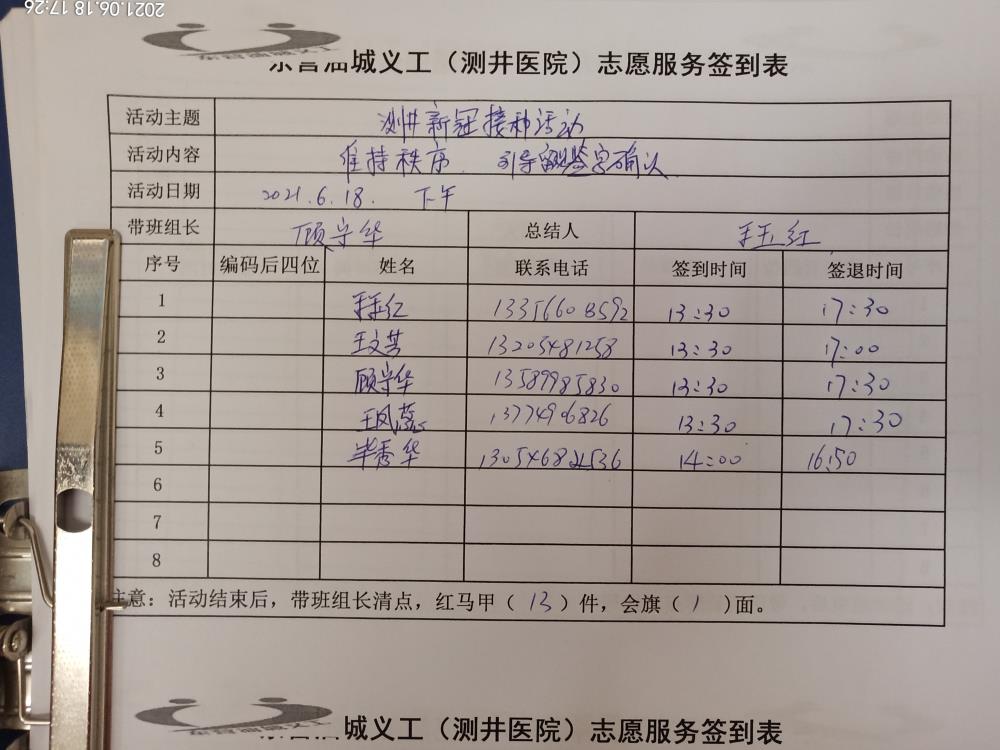 2021.06.18 17:26
东营油城义工（测井医院）志愿服务签到表
活动主题 测井新冠接种活动
活动内容 维持秩序、引导留观签字确认
活动日期 2021.6.18. 下午
带班组长 顾宁华 总结人 王玉红
序号 编码后四位 姓名 联系电话 签到时间 签退时间
1 王玉红 13:30 17:30
2 王文芳 13205481258 13:30 17:00
3 顾宁华 13589985830 13:30 17:30
4 王凤蕊 1377496826 13:30 17:30
5 毕秀华 14:00 16:50
6
7
8
注意：活动结束后，带班组长清点，红马甲（13）件，会旗（1）面。
东营油城义工（测井医院）志愿服务签到表